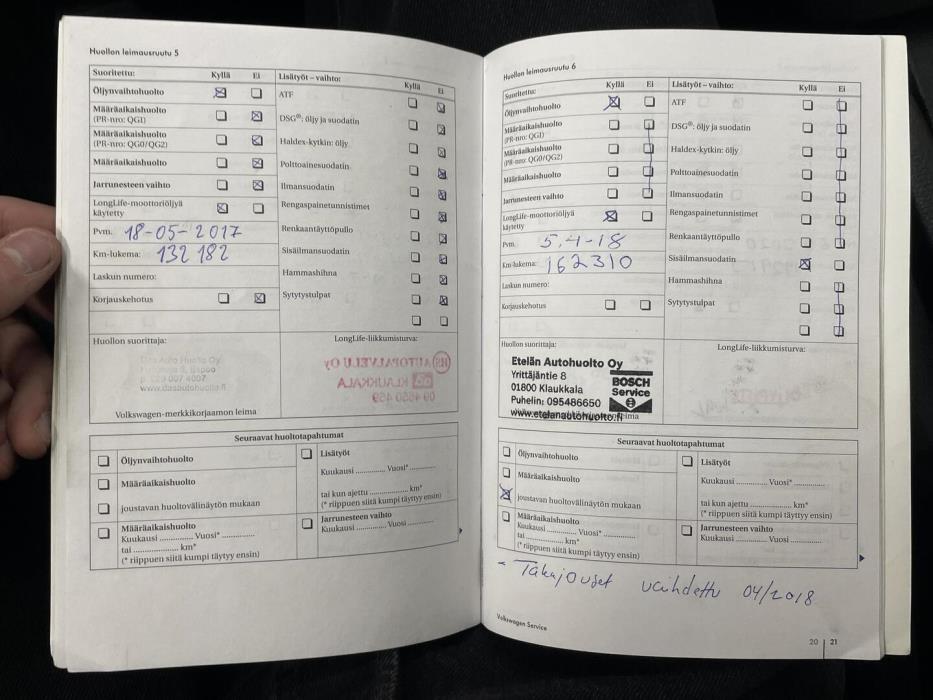 Huollon leimausruutu 5
Suoritettu: Kyllä Ei
Öljynvaihtohuolto
Määräaikaishuolto
(PR-nro: QGI)
Määräaikaishuolto
(PR-nro: QG0/QG2)
Määräaikaishuolto
Jarrunesteen vaihto
LongLife-moottoriöljyä
käytetty
Pvm. 18-05-2017
Km-lukema: 132 182
Laskun numero:
Korjauskehotus
Lisätyöt – vaihto: Kyllä Ei
ATF
DSG®: öljy ja suodatin
Haldex-kytkin: öljy
Polttoainesuodatin
Ilmansuodatin
Rengaspainetunnistimet
Renkaantäyttöpullo
Sisäilmansuodatin
Hammashihna
Sytytystulpat
Huollon suorittaja:
Das Auto Huolto Oy
p. 029 007 4007
www.dasautohuolto.fi
Volkswagen-merkkikorjaamon leima
LongLife-liikkumisturva:
AUTOPALVELU Oy
KLAUKKALA
Seuraavat huoltotapahtumat
Öljynvaihtohuolto
Määräaikaishuolto
joustavan huoltovälinäytön mukaan
Määräaikaishuolto
Kuukausi .............. Vuosi* ..............
tai .................... km*
(* riippuen siitä kumpi täyttyy ensin)
Lisätyöt
Kuukausi .............. Vuosi* ..............
tai kun ajettu .................. km*
(* riippuen siitä kumpi täyttyy ensin)
Jarrunesteen vaihto
Kuukausi .............. Vuosi ..............
Huollon leimausruutu 6
Suoritettu: Kyllä Ei
Öljynvaihtohuolto
Määräaikaishuolto
(PR-nro: QGI)
Määräaikaishuolto
(PR-nro: QG0/QG2)
Määräaikaishuolto
Jarrunesteen vaihto
LongLife-moottoriöljyä
käytetty
Pvm. 5.4-18
Km-lukema: 162310
Laskun numero:
Korjauskehotus
Lisätyöt – vaihto: Kyllä Ei
ATF
DSG®: öljy ja suodatin
Haldex-kytkin: öljy
Polttoainesuodatin
Ilmansuodatin
Rengaspainetunnistimet
Renkaantäyttöpullo
Sisäilmansuodatin
Hammashihna
Sytytystulpat
Huollon suorittaja:
Etelän Autohuolto Oy
Yrittäjäntie 8
01800 Klaukkala
Puhelin: 095486650
www.etelanautohuolto.fi
BOSCH
Service
LongLife-liikkumisturva:
Seuraavat huoltotapahtumat
Öljynvaihtohuolto
Määräaikaishuolto
joustavan huoltovälinäytön mukaan
Määräaikaishuolto
Kuukausi .............. Vuosi* ..............
tai .................... km*
(* riippuen siitä kumpi täyttyy ensin)
Lisätyöt
Kuukausi .............. Vuosi* ..............
tai kun ajettu .................. km*
(* riippuen siitä kumpi täyttyy ensin)
Jarrunesteen vaihto
Kuukausi .............. Vuosi ..............
- Takajouset vaihdettu 04/2018
Volkswagen Service
20 | 21